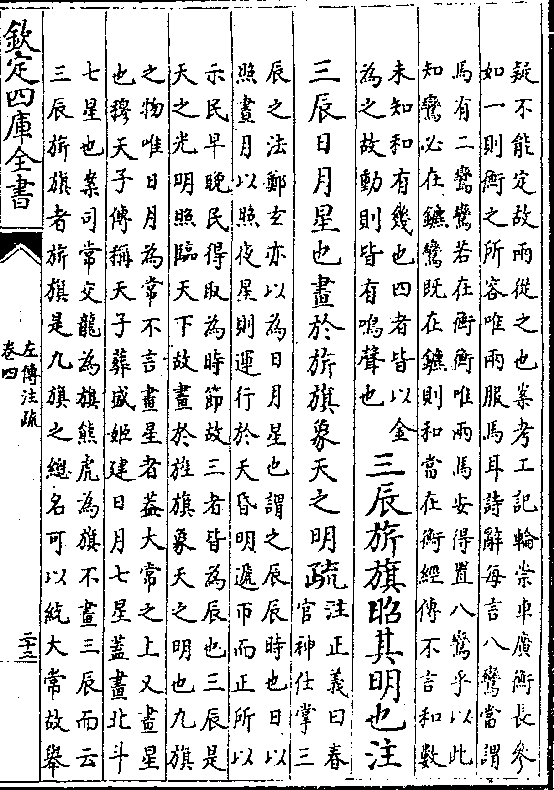 疑不能定故兩從之也案考工記輪崇車廣衡長參
如一則衡之所容唯兩服馬耳詩辭每言八鸞當謂
馬有二鸞鸞若在衡衡唯兩馬安得置八鸞乎以此
知鸞必在鑣鸞既在鑣則和當在衡經傳不言和數
未知和有幾也四者皆以金
為之故動則皆有鳴聲也
三辰旂旗昭其明也注
三辰日月星也畫於旂旗象天之明疏
注正義曰春
官神仕掌三
辰之法鄭玄亦以為日月星也謂之辰辰時也日以
照晝月以照夜星則運行於天昏明遞帀而正所以
示民早晚民得取為時節故三者皆為辰也三辰是
天之光明照臨天下故畫於旌旗象天之明也九旗
之物唯日月為常不言畫星者葢大常之上又畫星
也穆天子傳稱天子葬盛姬建日月七星蓋畫北斗
七星也案司常交龍為旂熊虎為旗不畫三辰而云
三辰旂旗者旂旗是九旗之總名可以統大常故舉
欽定四庫全書
左傳注疏
卷四
二十三